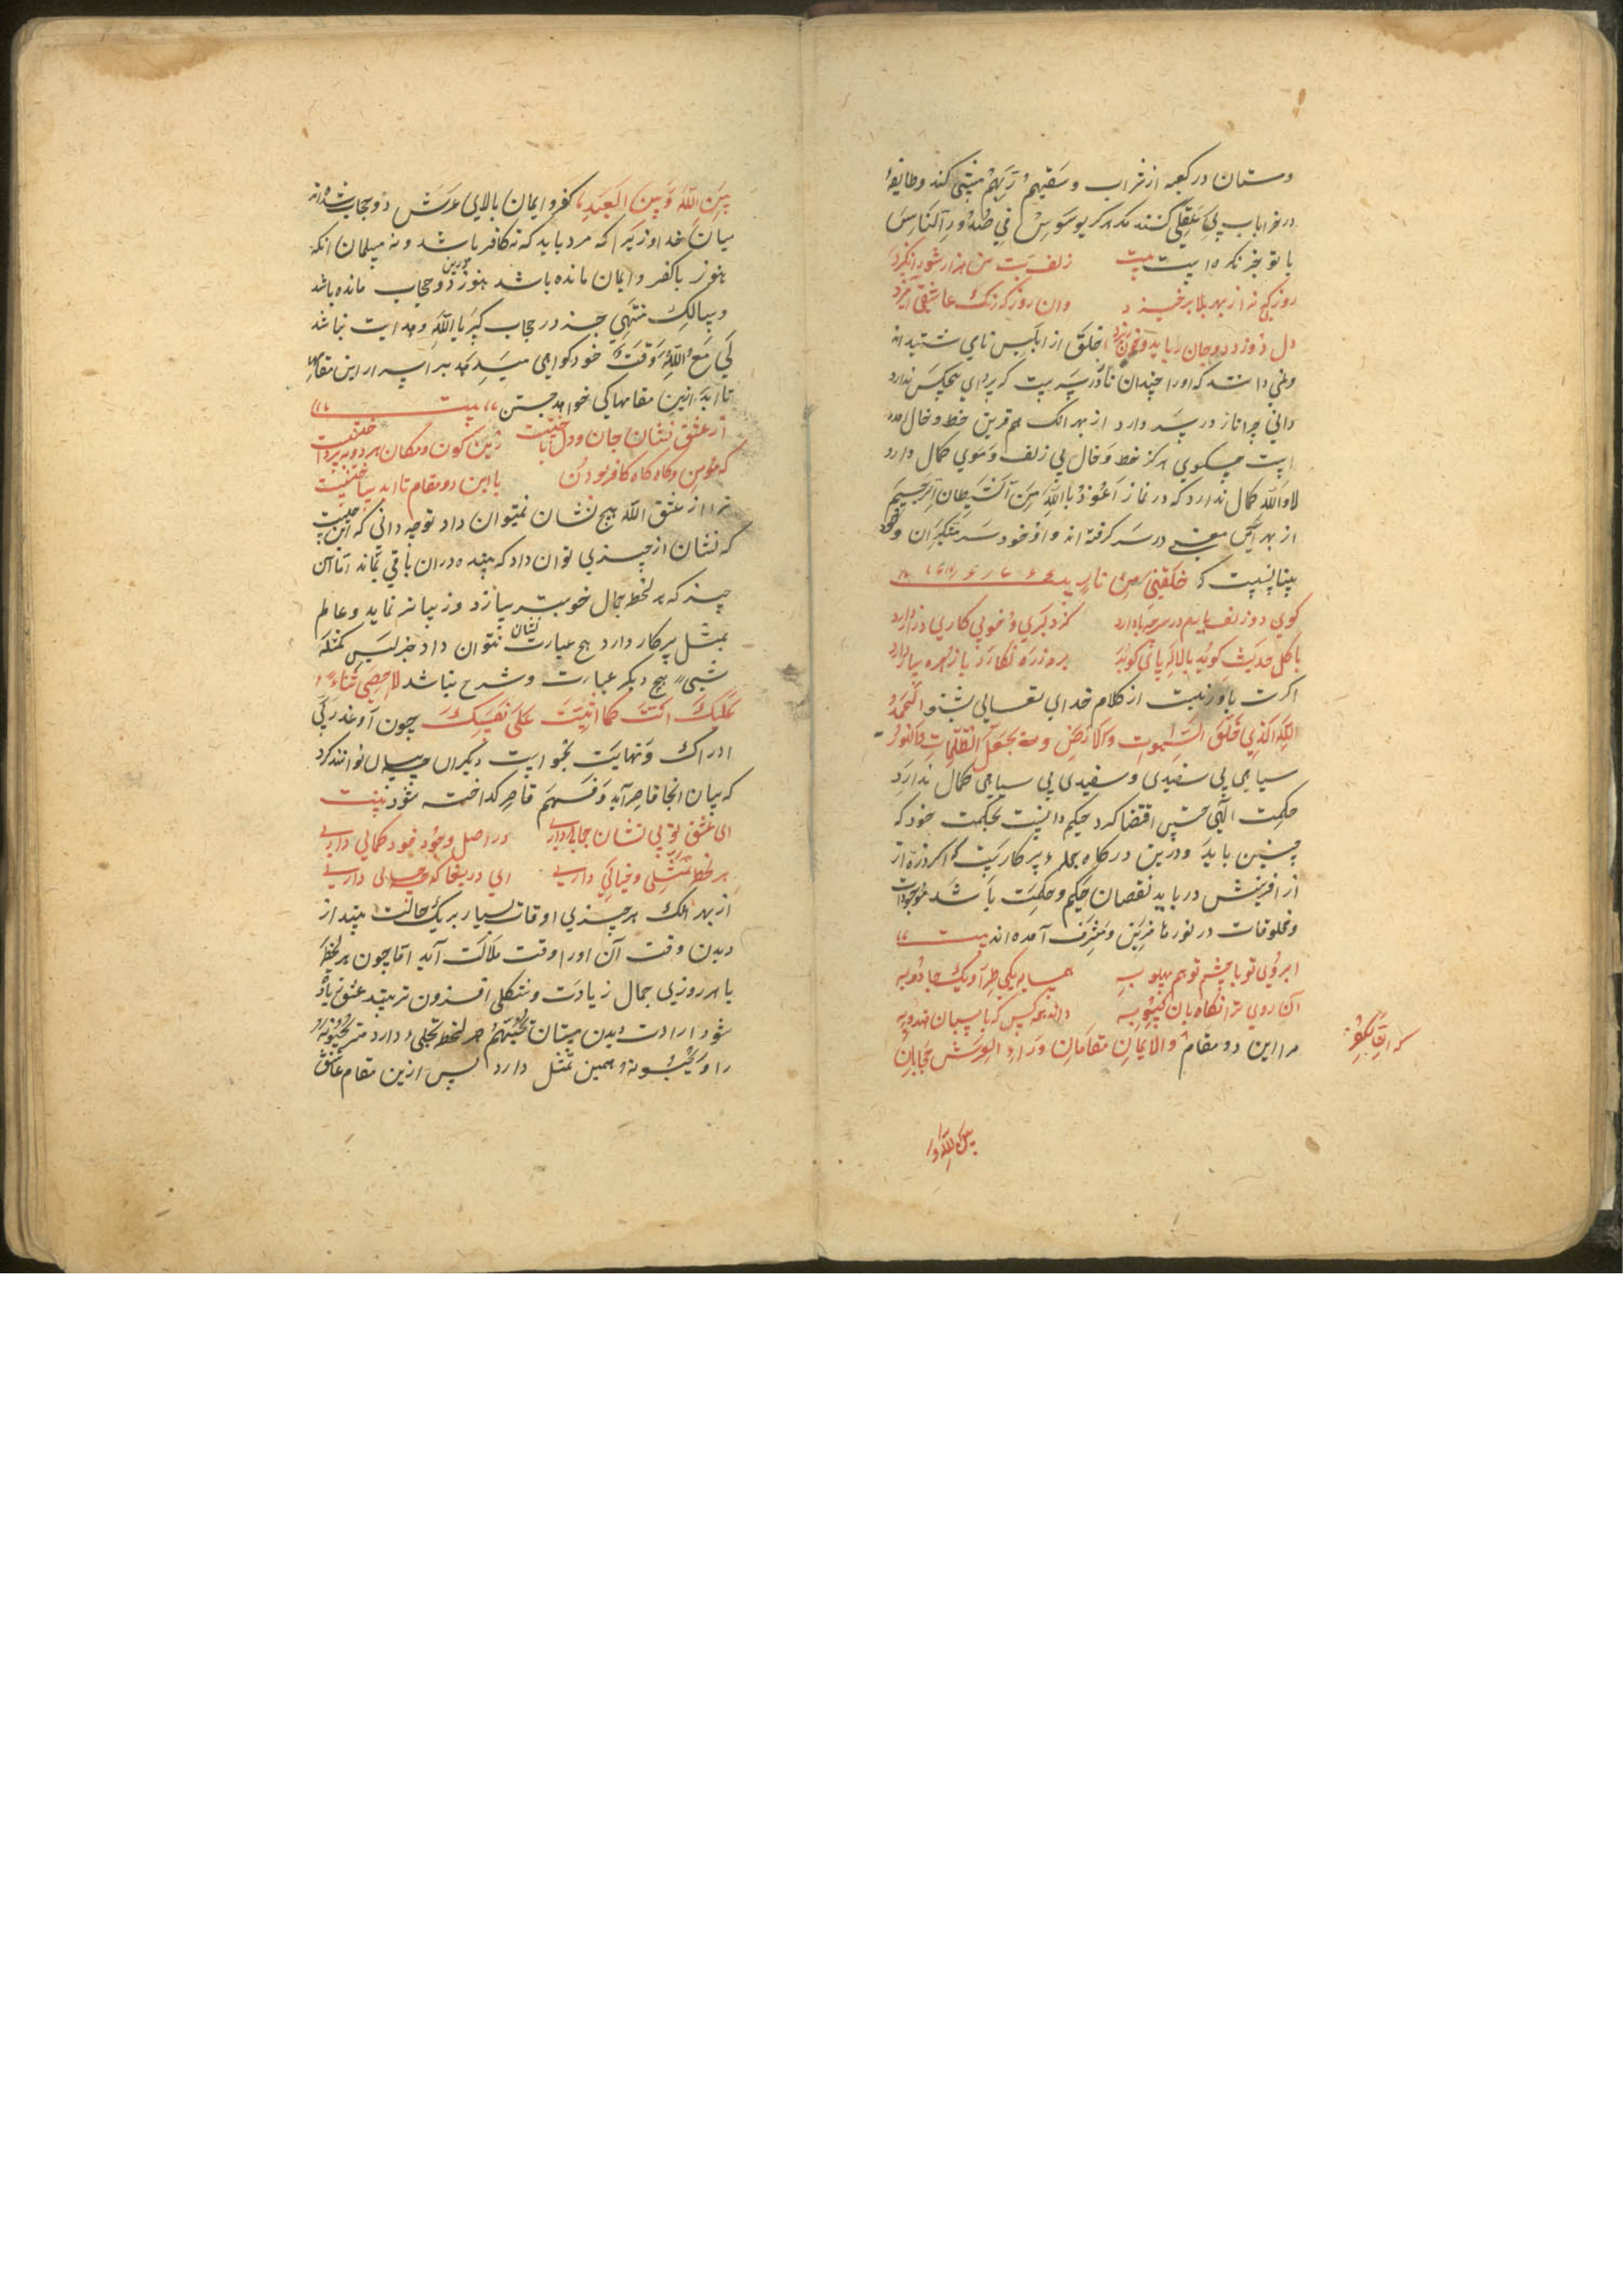 ومستان در کعبه از شراب وسقیهم ربهم مستی کنند وطایفه
در خرابات بی عقلی کنند مکر هر که یوسوس فی صدور الناس
با تو بخبر نکرده است بیت زلف بت من هزار شور انکیزد
روزیکه نه از بهر بلا برخیزد وان روز که رنک عاشقی آمیزد
دل دزدد وجان رباید وخون ریزد خلق از ابلیس نامی شنیده اند
ونمی دانند که اورا چندان ناز در سر است که پروای هیچکس ندارد
دانی چرا ناز در سر دارد از بهر آنک هم قرین خط وخال آمده
است چه کوی هرکز خط وخال بی زلف وموی کمال دارد
لا والله کمال ندارد که در نماز اعوذ بالله من الشیطان الرجیم
از بهر این معنی در سر کرفته اند واو خود سر متکبران وخود
بینانست که خلقتنی من نار بیت
کوی دو زلف یارم در سر چها دارد
با کل حدیث کوید با لاله پای کوبد
اکرت باور نیست از کلام خدای تعالی بشنو الحمد
لله الذی خلق السموات والارض وجعل الظلمات والنور
سیاهی بی سفیدی وسفیدی بی سیاهی کمال ندارد
حکمت الهی چنین اقتضا کرد حکیم دانست بحکمت خود که
چنین باید ودرین درکاه جمله بر کاریست که اکر ذره از
از افرینش درباید نقصان حکیم وحکمت باشد موجودات
ومخلوقات در نورها مزین ومشرف آمده اند بیت
ابروی تو با چشم تو هم پهلو به همسایه یکی طرار ویک جادو به
آن روی ترا نکاه بان کیسو به داند همه کس که پاسبان هندو به
مر این دو مقام والایمان مقامان وراء العرش حجابان
که ان الکفر
بین الله و
بین الله وبین العبد کفر وایمان بالای عرش دو حجاب شده اند
میان خدا و زیرا که مرد باید که نه کافر باشد ونه مسلمان آنکه
هنوز با کفر وایمان مانده باشد هنوز درین دو حجاب مانده باشد
وسالک منتهی جز در حجاب کبریاء الله وهدایت نباشد
لی مع الله وقت خود کواهی میدهد بر اسرار این مقام
تا ابد ازین مقامها کی خواهد جستن بیت
از عشق نشان جان ودل باختنیست زین کون ومکان هر دو بپرداختنیست
که مؤمن وکاه کاه کافر بودن با این دو مقام تا ابد ساختنیست
ترا از عشق الله هیچ نشان نمیتوان داد تو چه دانی که این چیست
که نشان از چیزی توان داد که بیننده دران باقی بماند اما آن
چیز که هر لحظه جمال خوبتر سازد وزیباتر نماید وعالم
تمثل بر کار دارد هیچ عبارت نشان نتوان داد جز لیس کمثله
شیء هیچ دیکر عبارت وشرح نباشد لا احصی ثناء
علیک انت کما اثنیت علی نفسک چون او عذر بی
ادراک ونهایت بخواست دیکران چه سان توانند کرد
که بیان انجا قاصر آید وفهم قاصر کداخته شود بیت
ای عشق تو بی نشان جمالی داری در اصل وجود خود کمالی داری
هر لحظه تمثلی وخیالی داری ای دریغا که چه حالی داری
از بهر آنک هر چیزی اوقات بسیار بر یک حالت بیند از
دیدن وقت آن اورا وقت ملالت آید اما چون هر لحظه
یا هر روزی جمال زیادت وشکلی افزون تر بیند عشق زیاده
شود ارادت دیدن مشتاق یحبهم هر لحظه تجلی دارد مر یحبونه
را ویحبونه همین تمثل دارد پس ازین مقام عاشق